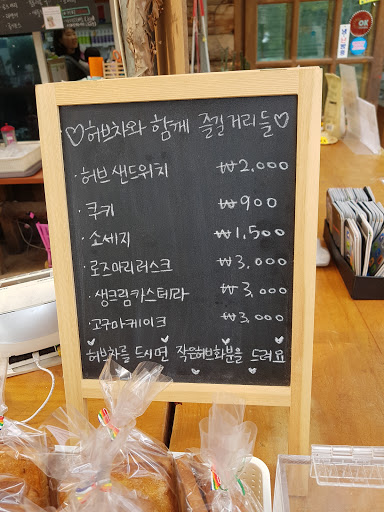 ♡허브차와 함께 즐길거리들♡
· 허브샌드위치 ₩2,000
· 쿠키 ₩900
· 소세지 ₩1,500
· 로즈마리러스크 ₩3,000
· 생크림카스테라 ₩3,000
· 고구마케이크 ₩3,000
허브차를 드시면 작은허브화분을 드려요